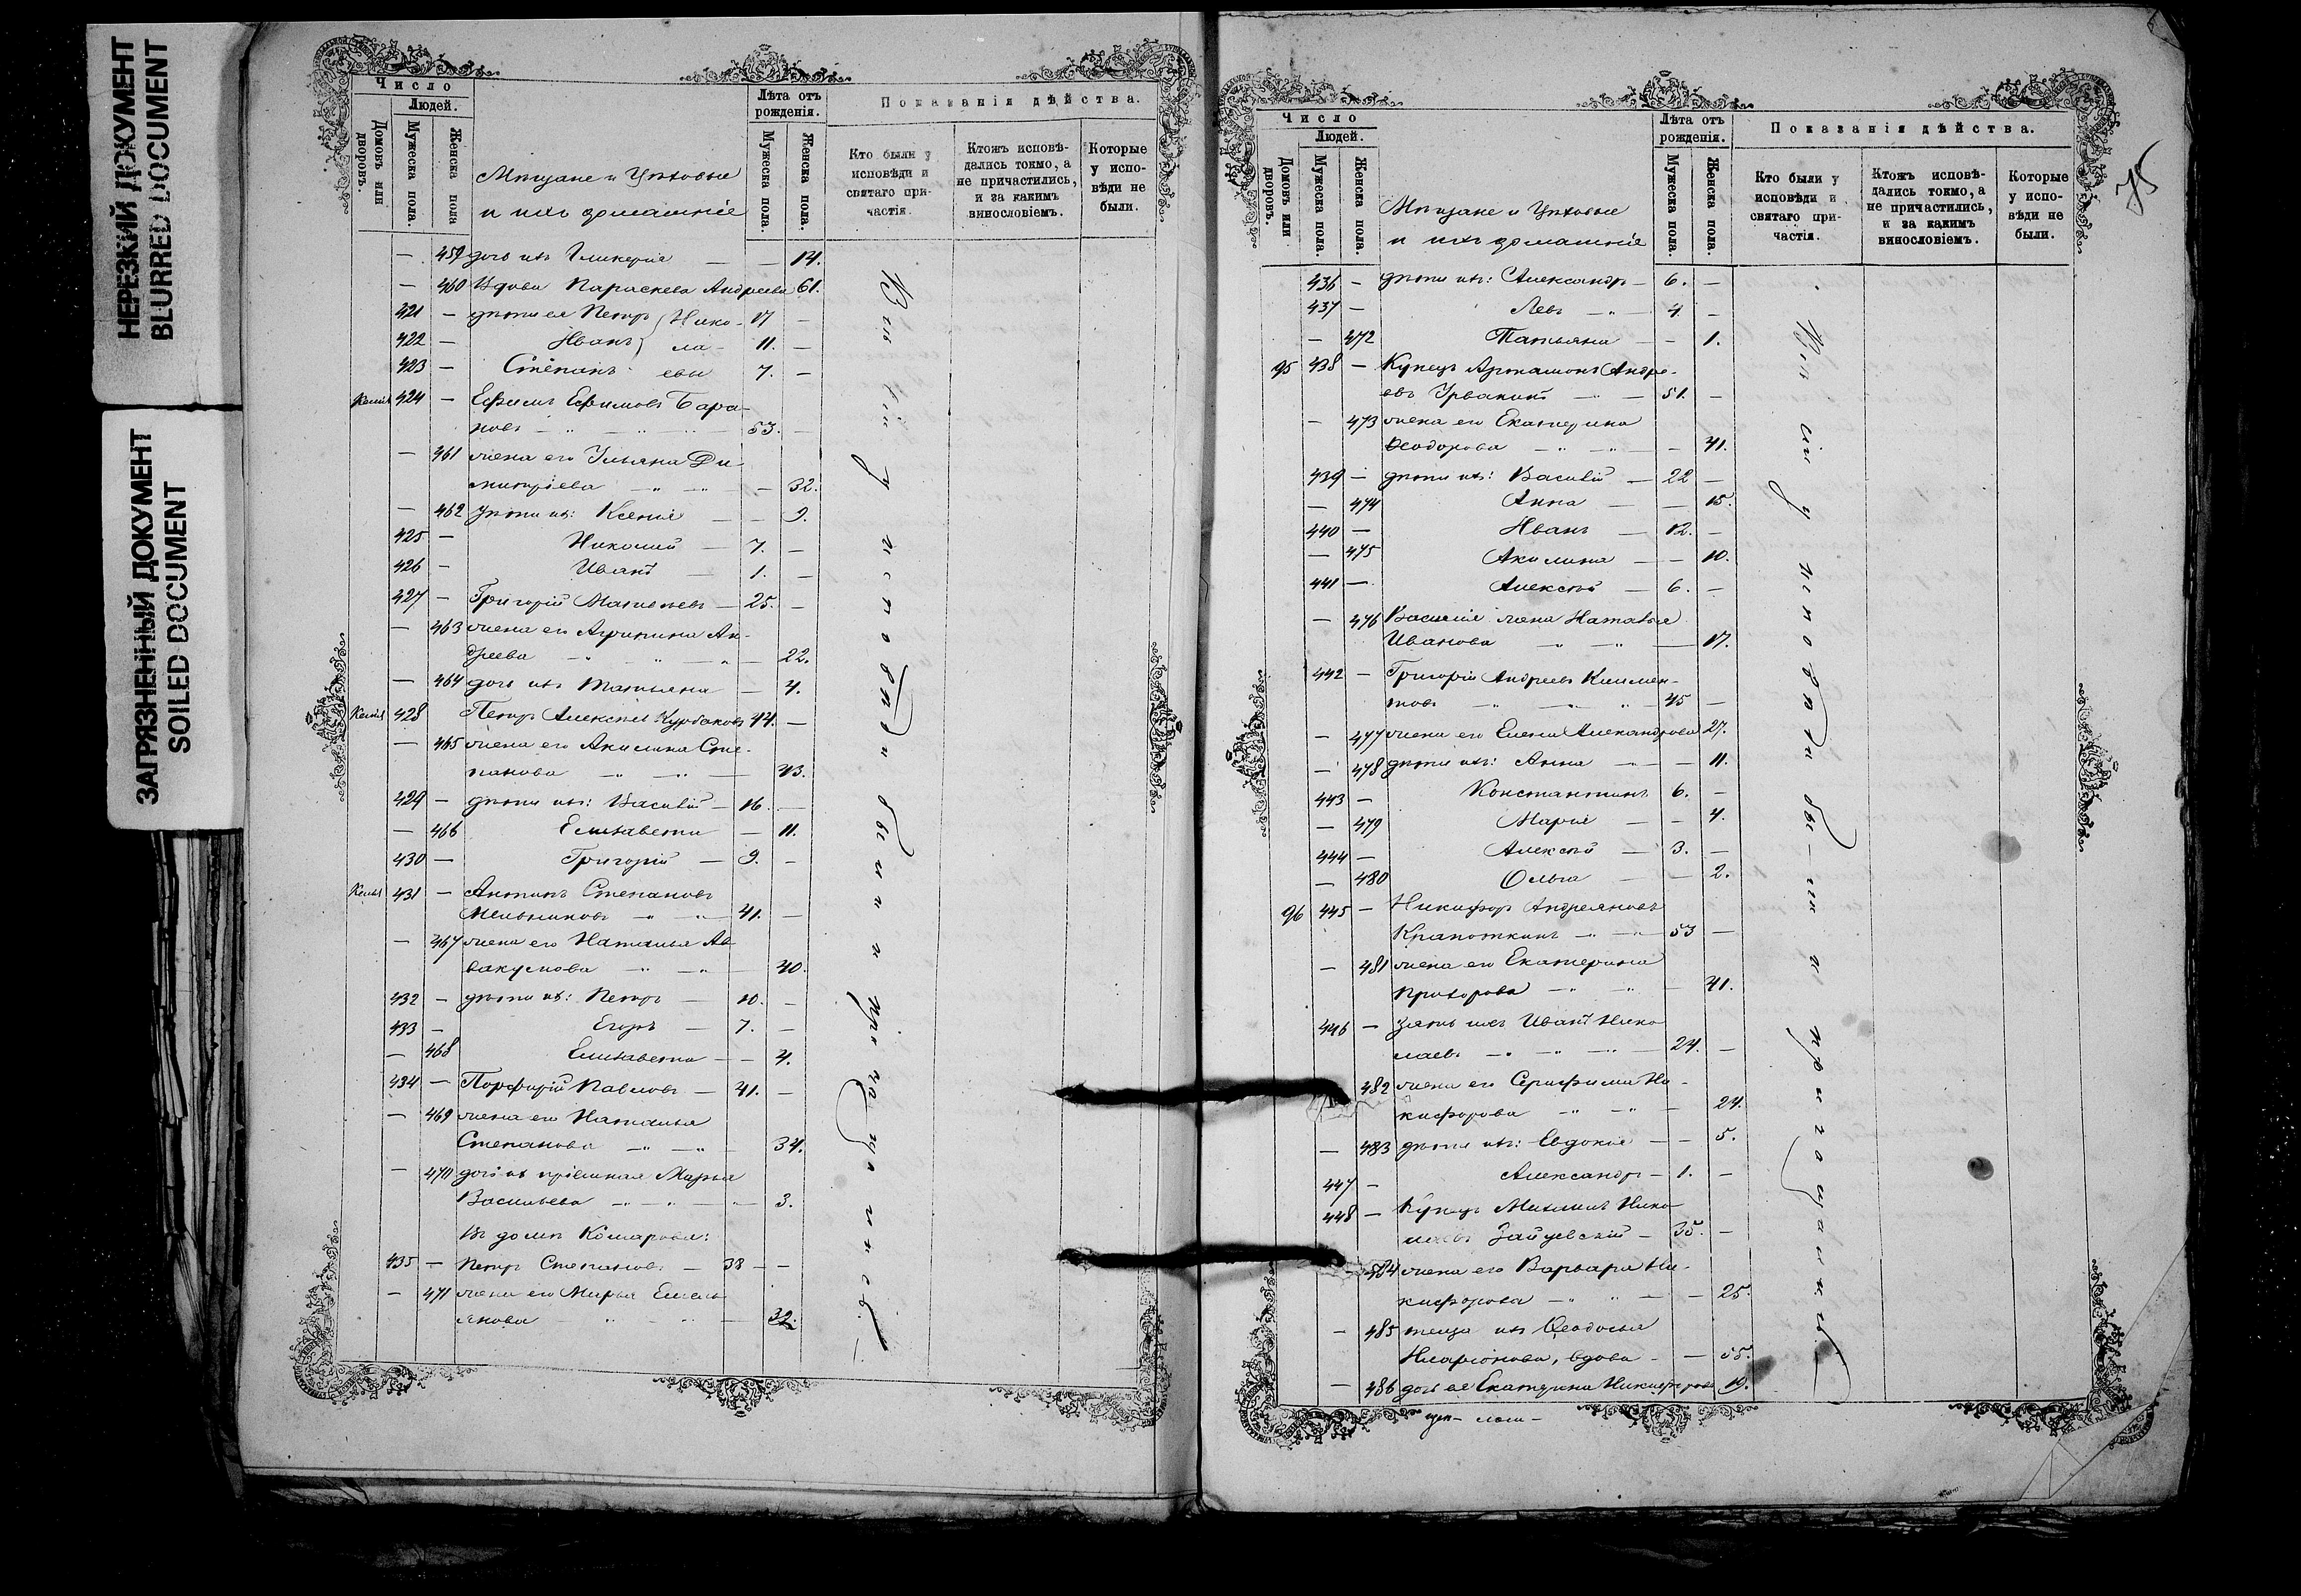 НЕРЕЗКИЙ ДОКУМЕНТ
BLURRED DOCUMENT
ЗАГРЯЗНЕННЫЙ ДОКУМЕНТ
SOILED DOCUMENT
Число
Людей.
Домовъ или дворовъ.
Мужеска пола.
Женска пола
Мѣщане и Цѣховые
и ихъ домашніе
Лѣта отъ рожденія.
Мужеска пола.
Женска пола.
Показанія дѣйства.
Кто были у исповѣди и святаго причастія.
Ктожъ исповѣдались токмо, а не причастились, и за какимъ винословіемъ.
Которые у исповѣди не были.
— 459 дочь ихъ Гликерія — — 14.
— 460 Вдова Параскева Андреева 61.
421 — дѣти ея Петръ Нико- 17 —
422 — Иванъ ла- 11. —
423 — Степанъ евы 7. —
424 — Ефимъ Ефимовъ Бара-
новъ — 53. —
— 461 жена его Ульяна Ди-
митріева — 32.
— 462 дѣти ихъ: Ксенія — — 9.
425 — Николай — 7. —
426 — Иванъ — 1. —
427 — Григорій Матвѣевъ — 25. —
— 463 жена его Агрипина Ан-
дреева — 22.
— 464 дочь ихъ Татьяна — 4.
428 Петръ Алексѣевъ Курбаковъ 44. —
— 465 жена его Акилина Сте-
панова — 43.
429 — дѣти ихъ: Василій — 16. —
— 466 Елизавета — 11.
430 — Григорій — 9. —
431 — Антипъ Степановъ
Мельниковъ — 41. —
— 467 жена его Наталья Ав-
вакумова — 40.
432 — дѣти ихъ: Петръ — 10. —
433 — Егоръ — 7. —
— 468 Елизавета — — 4.
434 — Порфирій Павловъ — 41. —
— 469 жена его Наталья
Степанова — 34.
— 470 дочь ихъ пріемная Марья
Васильева — 3.
Въ домѣ Комарова:
435 — Петръ Степановъ — 38 — —
— 471 жена его Марья Емель-
янова — 32.
Всѣ сіи у исповѣди были и причащались.
75
Число
Людей.
Домовъ или дворовъ.
Мужеска пола.
Женска пола.
Мѣщане и Цѣховые
и ихъ домашніе
Лѣта отъ рожденія.
Мужеска пола.
Женска пола.
Показанія дѣйства.
Кто были у исповѣди и святаго причастія.
Ктожъ исповѣдались токмо, а не причастились, и за какимъ винословіемъ.
Которые у исповѣди не были.
436 — дѣти ихъ: Александръ — 6. —
437 — Левъ — 4. —
— 472 Татьяна — — 1.
95 438 — Купецъ Артамонъ Андре-
евъ — 51. —
— 473 жена его Екатерина
Ѳеодорова — — 41.
439 — дѣти ихъ: Василій — 22 —
— 474 Анна — — 15.
440 — Иванъ — 12. —
— 475 Акилина — — 10.
441 — Алексѣй — 6. —
— 476 Василія жена Наталья
Иванова — 17.
442 — Григорій Андреевъ Климен-
товъ — 45 —
— 477 жена его Елена Александрова 27.
— 478 дѣти ихъ: Анна — — 11.
443 — Константинъ 6. —
— 479 Марія — — 4.
444 — Алексѣй — 3. —
— 480 Ольга — — 2.
96 445 — Никифоръ Андреяновъ
Крапоткинъ — 53 —
— 481 жена его Екатерина
Прохорова — — 41.
446 — зять ихъ Иванъ Нико-
лаевъ — 24. —
482 жена его Серафима Ни-
кифорова — 24.
— 483 дѣти ихъ: Евдокія — — 5.
447 — Александръ — 1. —
448 — Купецъ Михаилъ Нико-
лаевъ Зайцевскій — 35. —
484 жена его Варвара Ни-
кифорова — — 25.
— 485 теща ихъ Ѳеодосья
Иларіонова, вдова — — 55.
— 486 дочь ея Екатерина Никифорова 19.
Всѣ сіи у исповѣди были и причащались